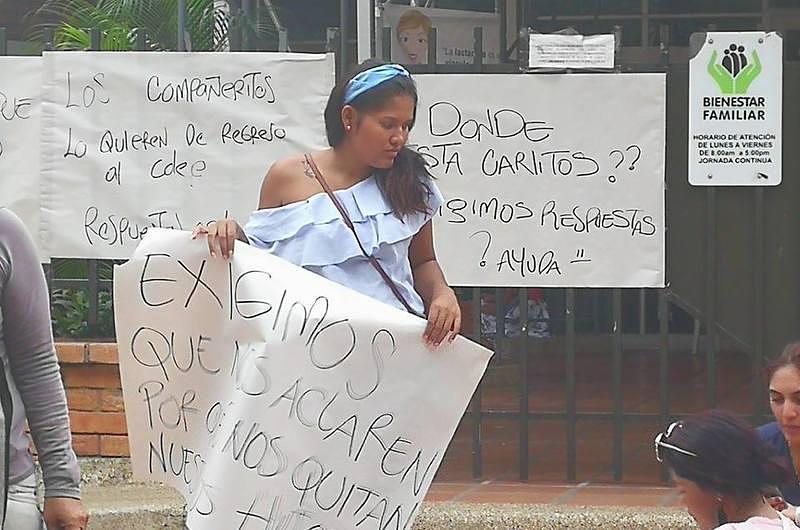 "La lactan
QUE
LOS COMPAÑERITOS
Lo QUIEREN DE REGRESO
al cdee
RESPUESTA
DONDE
STA CARLITOS??
IGIMOS RESPUESTAS
? AYUDA =
BIENESTAR
FAMILIAR
HORARIO DE ATENCIÓN
DE LUNES A VIERNES
DE 8:00am a 5:00pm
JORNADA CONTINUA
EXIGIMOS
QUE NOS ACLAREN
POR QUE NOS QUITAN
NUESTROS HIJOS